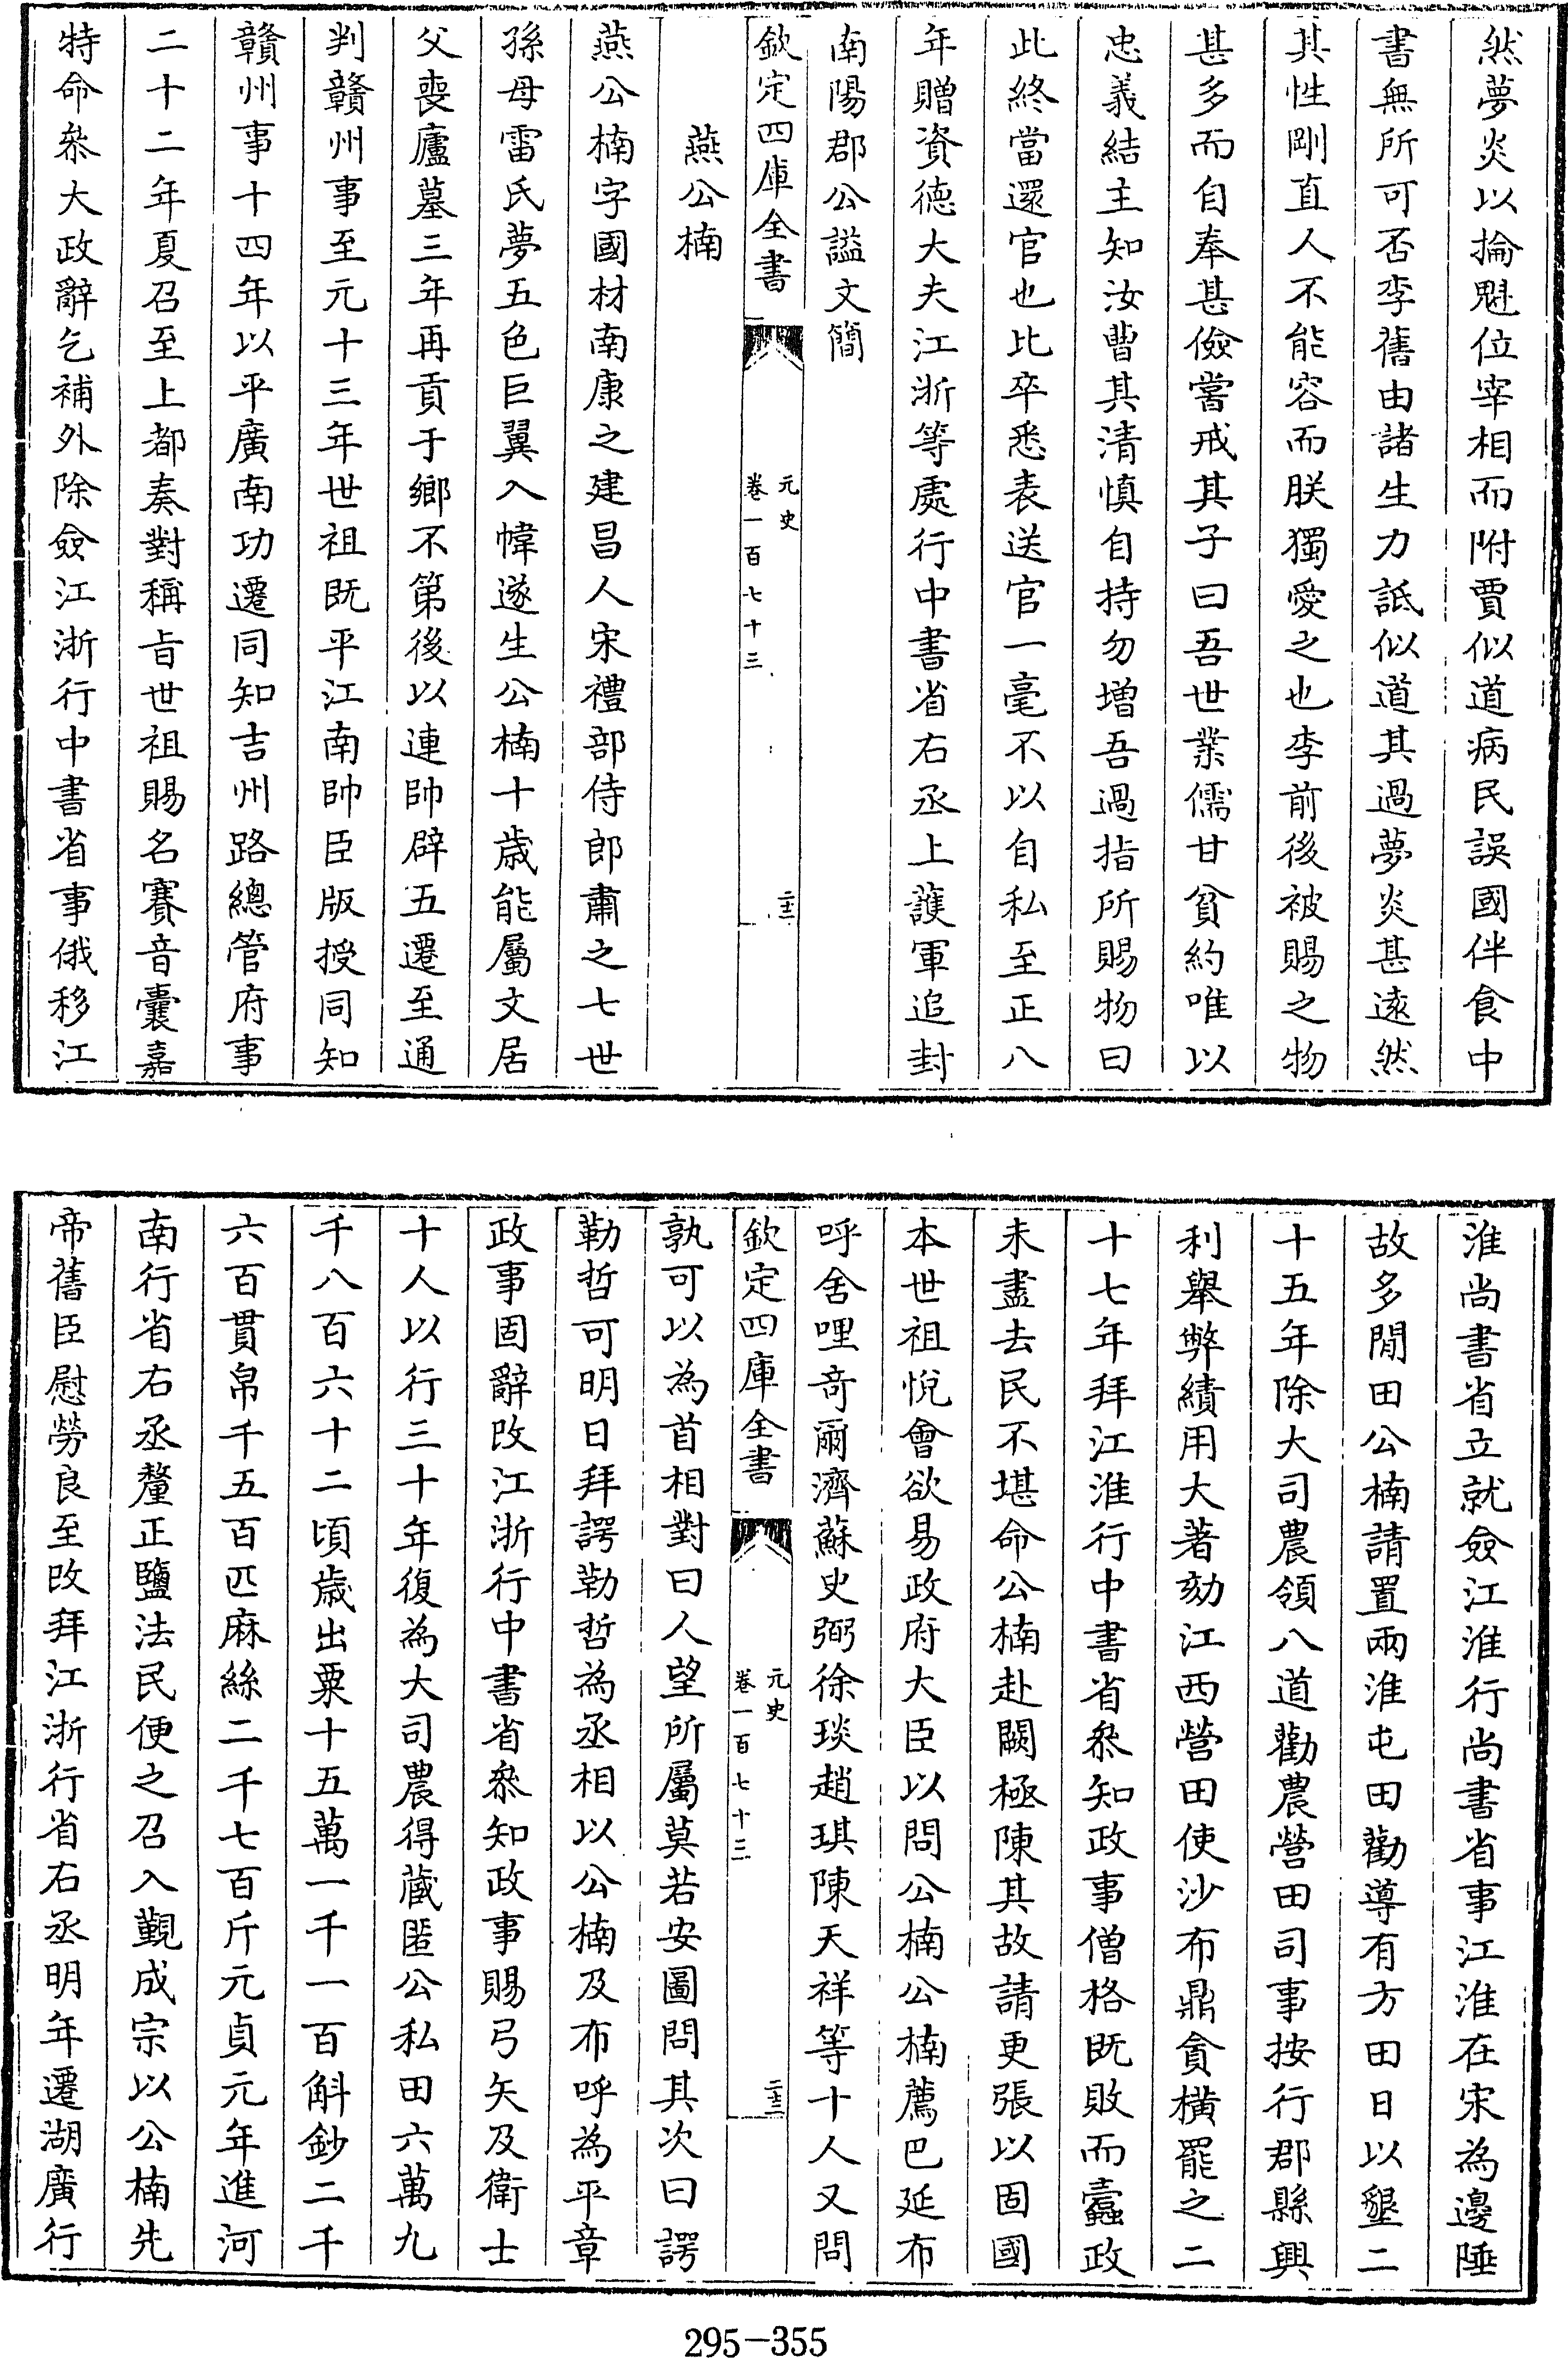 然夢炎以掄魁位宰相而附賈似道病民誤國伴食中
書無所可否李舊由諸生力詆似道其過夢炎甚遠然
其性剛直人不能容而朕獨愛之也李前後被賜之物
甚多而自奉甚儉嘗戒其子曰吾世業儒甘貧約唯以
忠義結主知汝曹其清慎自持勿增吾過指所賜物曰
此終當還官也比卒悉表送官一毫不以自私至正八
年贈資德大夫江浙等處行中書省右丞上護軍追封
南陽郡公謚文簡
欽定四庫全書
元史
卷一百七十三
二十三
燕公楠
燕公楠字國材南康之建昌人宋禮部侍郎肅之七世
孫母雷氏夢五色巨翼入幃遂生公楠十歳能屬文居
父喪廬墓三年再貢于鄉不第後以連帥辟五遷至通
判贛州事至元十三年世祖既平江南帥臣版授同知
贛州事十四年以平廣南功遷同知吉州路總管府事
二十二年夏召至上都奏對稱旨世祖賜名賽音囊嘉
特命叅大政辭乞補外除僉江浙行中書省事俄移江
淮尚書省立就僉江淮行尚書省事江淮在宋為邊陲
故多閒田公楠請置兩淮屯田勸導有方田日以墾二
十五年除大司農領八道勸農營田司事按行郡縣興
利舉弊績用大著劾江西營田使沙布鼎貪横罷之二
十七年拜江淮行中書省叅知政事僧格既敗而蠹政
未盡去民不堪命公楠赴闕極陳其故請更張以固國
本世祖悅會欲易政府大臣以問公楠公楠薦巴延布
呼舍哩竒爾濟蘇史弼徐琰趙琪陳天祥等十人又問
欽定四庫全書
元史
卷一百七十三
二十三
孰可以為首相對曰人望所屬莫若安圖問其次曰諤
勒哲可明日拜諤勒哲為丞相以公楠及布呼為平章
政事固辭改江浙行中書省叅知政事賜弓矢及衛士
十人以行三十年復為大司農得藏匿公私田六萬九
千八百六十二頃歳出粟十五萬一千一百斛鈔二千
六百貫帛千五百匹麻絲二千七百斤元貞元年進河
南行省右丞釐正鹽法民便之召入覲成宗以公楠先
帝舊臣慰勞良至改拜江浙行省右丞明年遷湖廣行
295-355